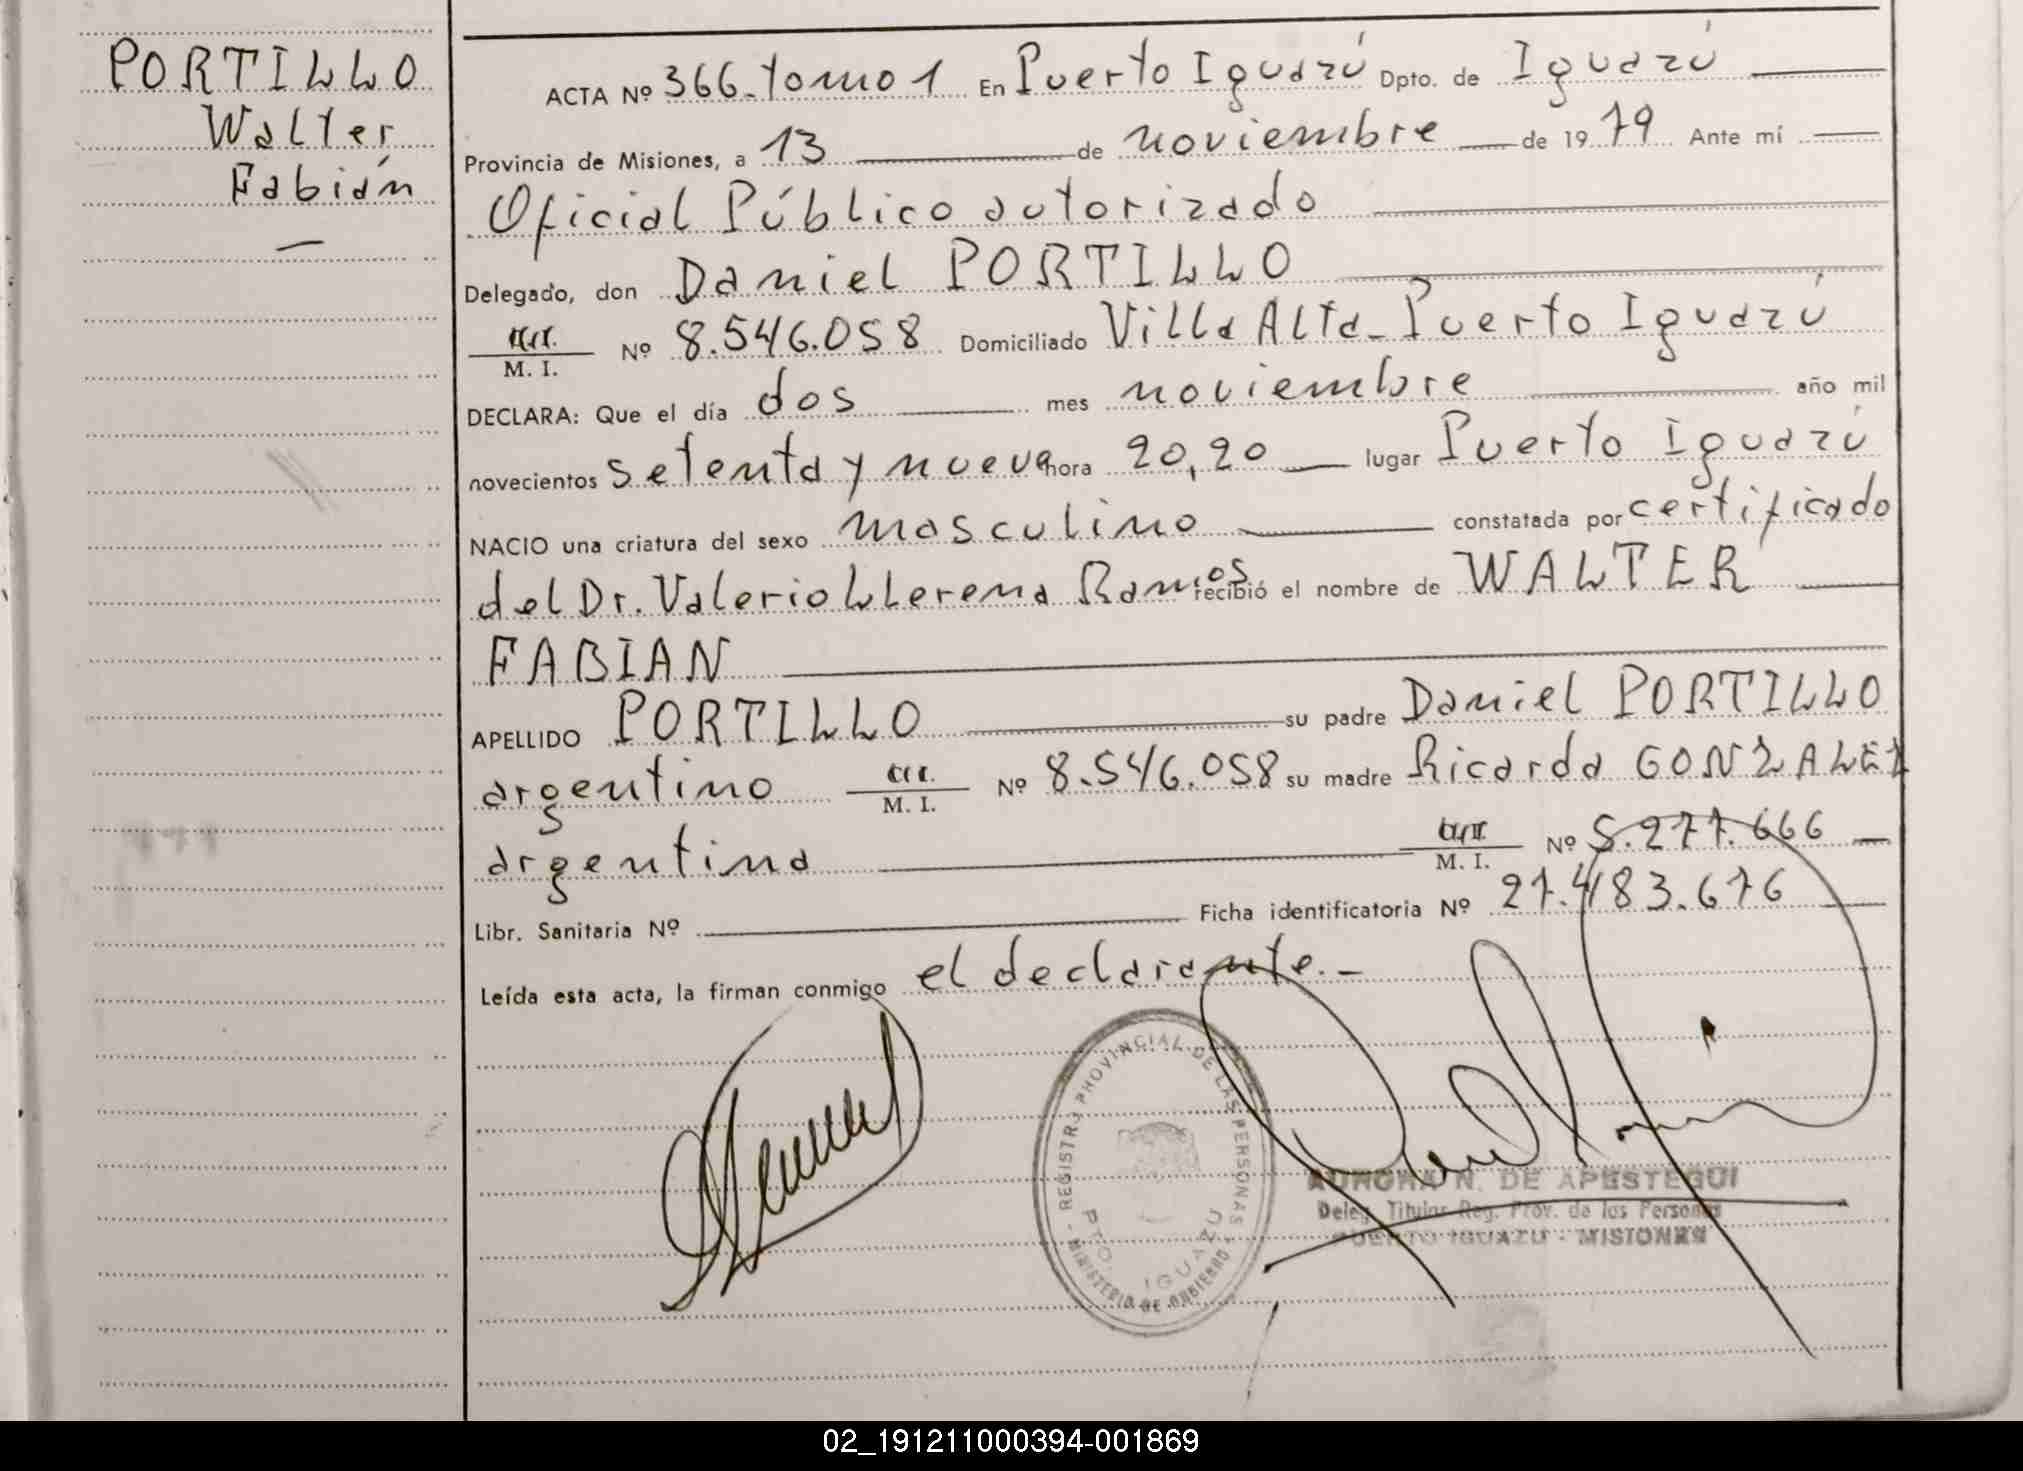 PORTILLO
Walter
Fabián
—
ACTA Nº 366-tomo 1 En Puerto Iguazú Dpto. de Iguazú
Provincia de Misiones, a 13 de noviembre de 1979 Ante mí
Oficial Público autorizado
Delegado, don Daniel PORTILLO
M. I. Nº 8.546.058 Domiciliado Villa Alta-Puerto Iguazú
DECLARA: Que el día dos mes noviembre año mil
novecientos setenta y nueve hora 20,20 lugar Puerto Iguazú
NACIO una criatura del sexo masculino constatada por certificado
del Dr. Valerio Llerena Ramos recibió el nombre de WALTER
FABIAN
APELLIDO PORTILLO su padre Daniel PORTILLO
argentino M. I. Nº 8.546.058 su madre Ricarda GONZALEZ
argentina M. I. Nº 5.277.666
Libr. Sanitaria Nº Ficha identificatoria Nº 27.483.676
Leída esta acta, la firman conmigo el declarante.-
REGISTRO PROVINCIAL DE LAS PERSONAS
MINISTERIO DE GOBIERNO
PTO. IGUAZU
AURORA N. DE APESTEGUI
Deleg. Titular Reg. Prov. de las Personas
PUERTO IGUAZU - MISIONES
02_191211000394-001869